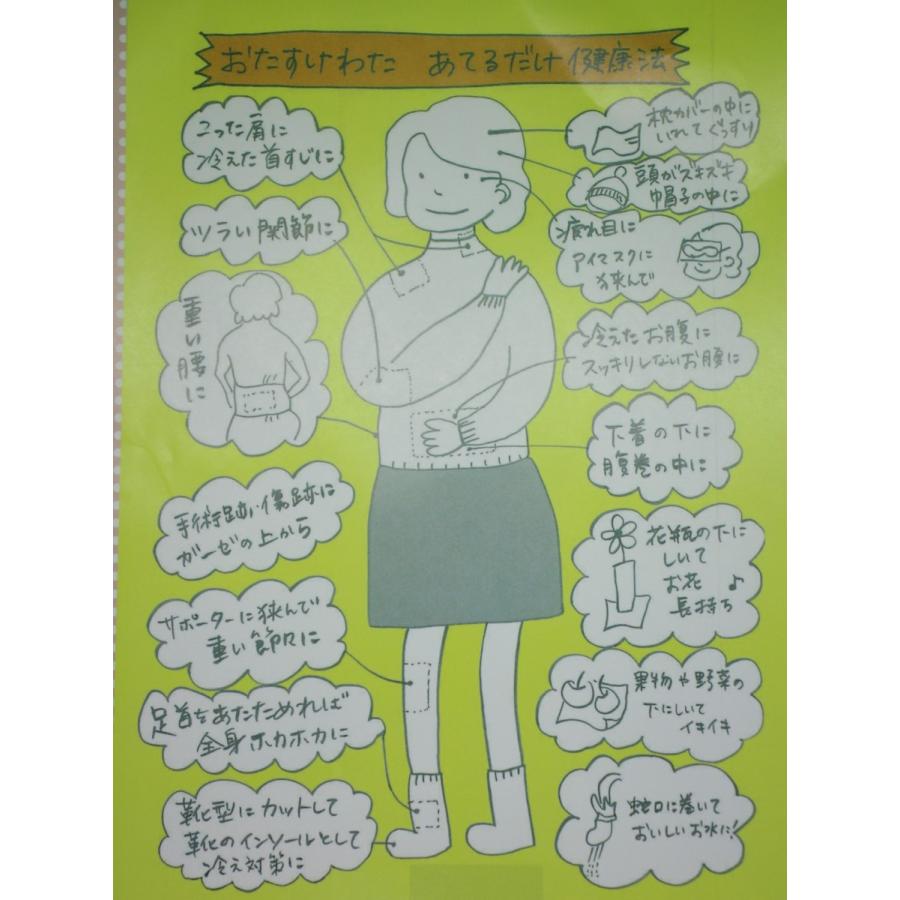 おたすけわた あてるだけ健康法
こった肩に
冷えた首すじに
ツラい関節に
重い腰に
手術跡、傷跡に
ガーゼの上から
サポーターに挟んで
重い節々に
足首をあたためれば
全身ホカホカに
靴型にカットして
靴のインソールとして
冷え対策に
枕カバーの中に
いれてぐっすり
頭がズキズキ
帽子の中に
疲れ目に
アイマスクに
挟んで
冷えたお腹に
スッキリしないお腹に
下着の下に
腹巻の中に
花瓶の下に
しいて
お花
長持ち♪
果物や野菜の
下にしいて
イキイキ
蛇口に巻いて
おいしいお水に!